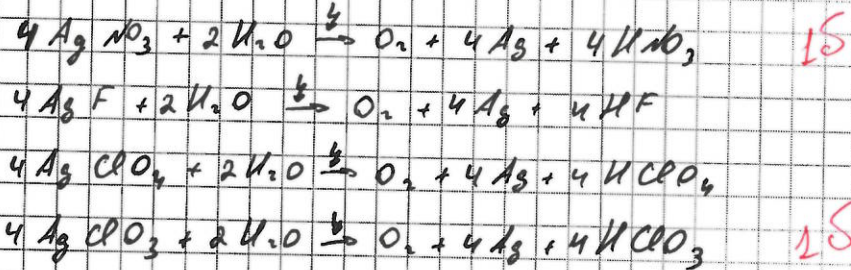 4 AgNO₃ + 2H₂O →(↯) O₂ + 4Ag + 4HNO₃ 1б
4AgF + 2H₂O →(↯) O₂ + 4Ag + 4HF
4AgClO₄ + 2H₂O →(↯) O₂ + 4Ag + 4HClO₄
4AgClO₃ + 2H₂O →(↯) O₂ + 4Ag + 4HClO₃ 1б